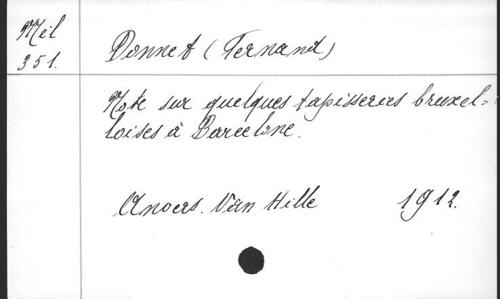 Mél
351.
Donnet (Fernand)
Note sur quelques tapisseries bruxel-
loises à Barcelone.
Anvers. Van Hille 1912.